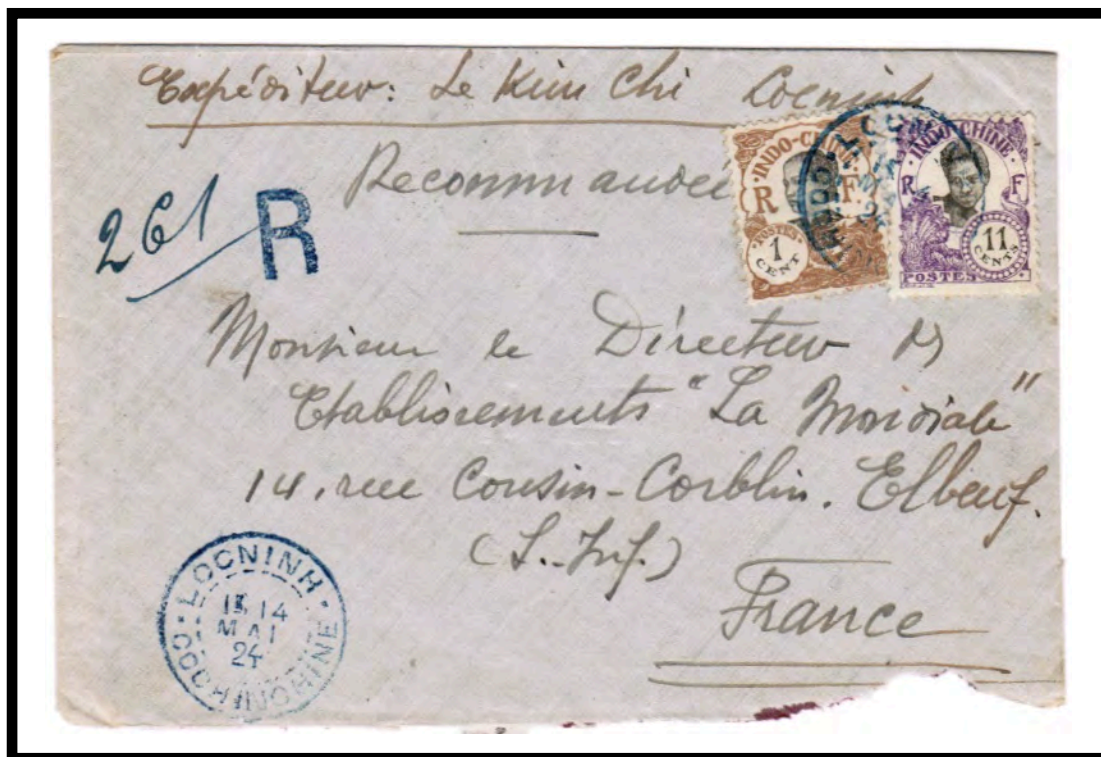 Expéditeur: Le Kim Chi Locninh
Recommandée
261 R
INDO-CHINE
R F
POSTES
1
CENT
INDO-CHINE
R F
11
CENTS
POSTES
Monsieur le Directeur des
Etablissements "La Mondiale"
14, rue Cousin-Corblin. Elbeuf.
(S.-Inf.)
France
LOCNINH
14
MAI
24
COCHINCHINE